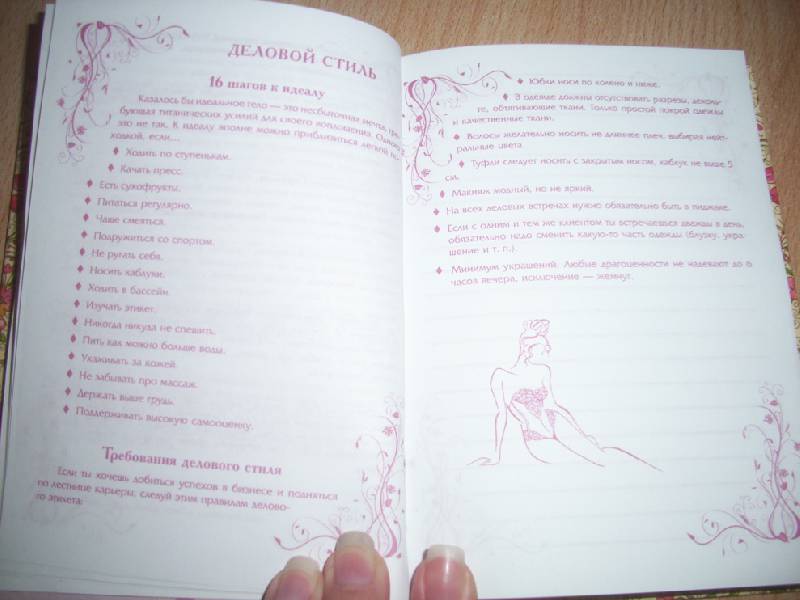 ДЕЛОВОЙ СТИЛЬ
16 шагов к идеалу
Казалось бы идеальное тело — это несбыточная мечта, тре-
бующая титанических усилий для своего воплощения. Однако
это не так. К идеалу вполне можно приблизиться легкой по-
ходкой, если...
♦ Ходить по ступенькам.
♦ Качать пресс.
♦ Есть сухофрукты.
♦ Питаться регулярно.
♦ Чаще смеяться.
♦ Подружиться со спортом.
♦ Не ругать себя.
♦ Носить каблуки.
♦ Ходить в бассейн.
♦ Изучать этикет.
♦ Никогда никуда не спешить.
♦ Пить как можно больше воды.
♦ Ухаживать за кожей.
♦ Не забывать про массаж.
♦ Держать выше грудь.
♦ Поддерживать высокую самооценку.
Требования делового стиля
Если ты хочешь добиться успехов в бизнесе и подняться
по лестнице карьеры, следуй этим правилам делово-
го этикета:
♦ Юбки носи по колено и ниже.
♦ В одежде должны отсутствовать разрезы, деколь-
те, обтягивающие ткани. Только простой покрой одежды
и качественные ткани.
♦ Волосы желательно носить не длиннее плеч, выбирая нейт-
ральные цвета.
♦ Туфли следует носить с закрытым носом, каблук не выше 5
см.
♦ Макияж модный, но не яркий.
♦ На всех деловых встречах нужно обязательно быть в пиджаке.
♦ Если с одним и тем же клиентом ты встречаешься дважды в день,
обязательно надо сменить какую-то часть одежды (блузку, укра-
шение и т. п.).
♦ Минимум украшений. Любые драгоценности не надевают до 6
часов вечера, исключение — жемчуг.